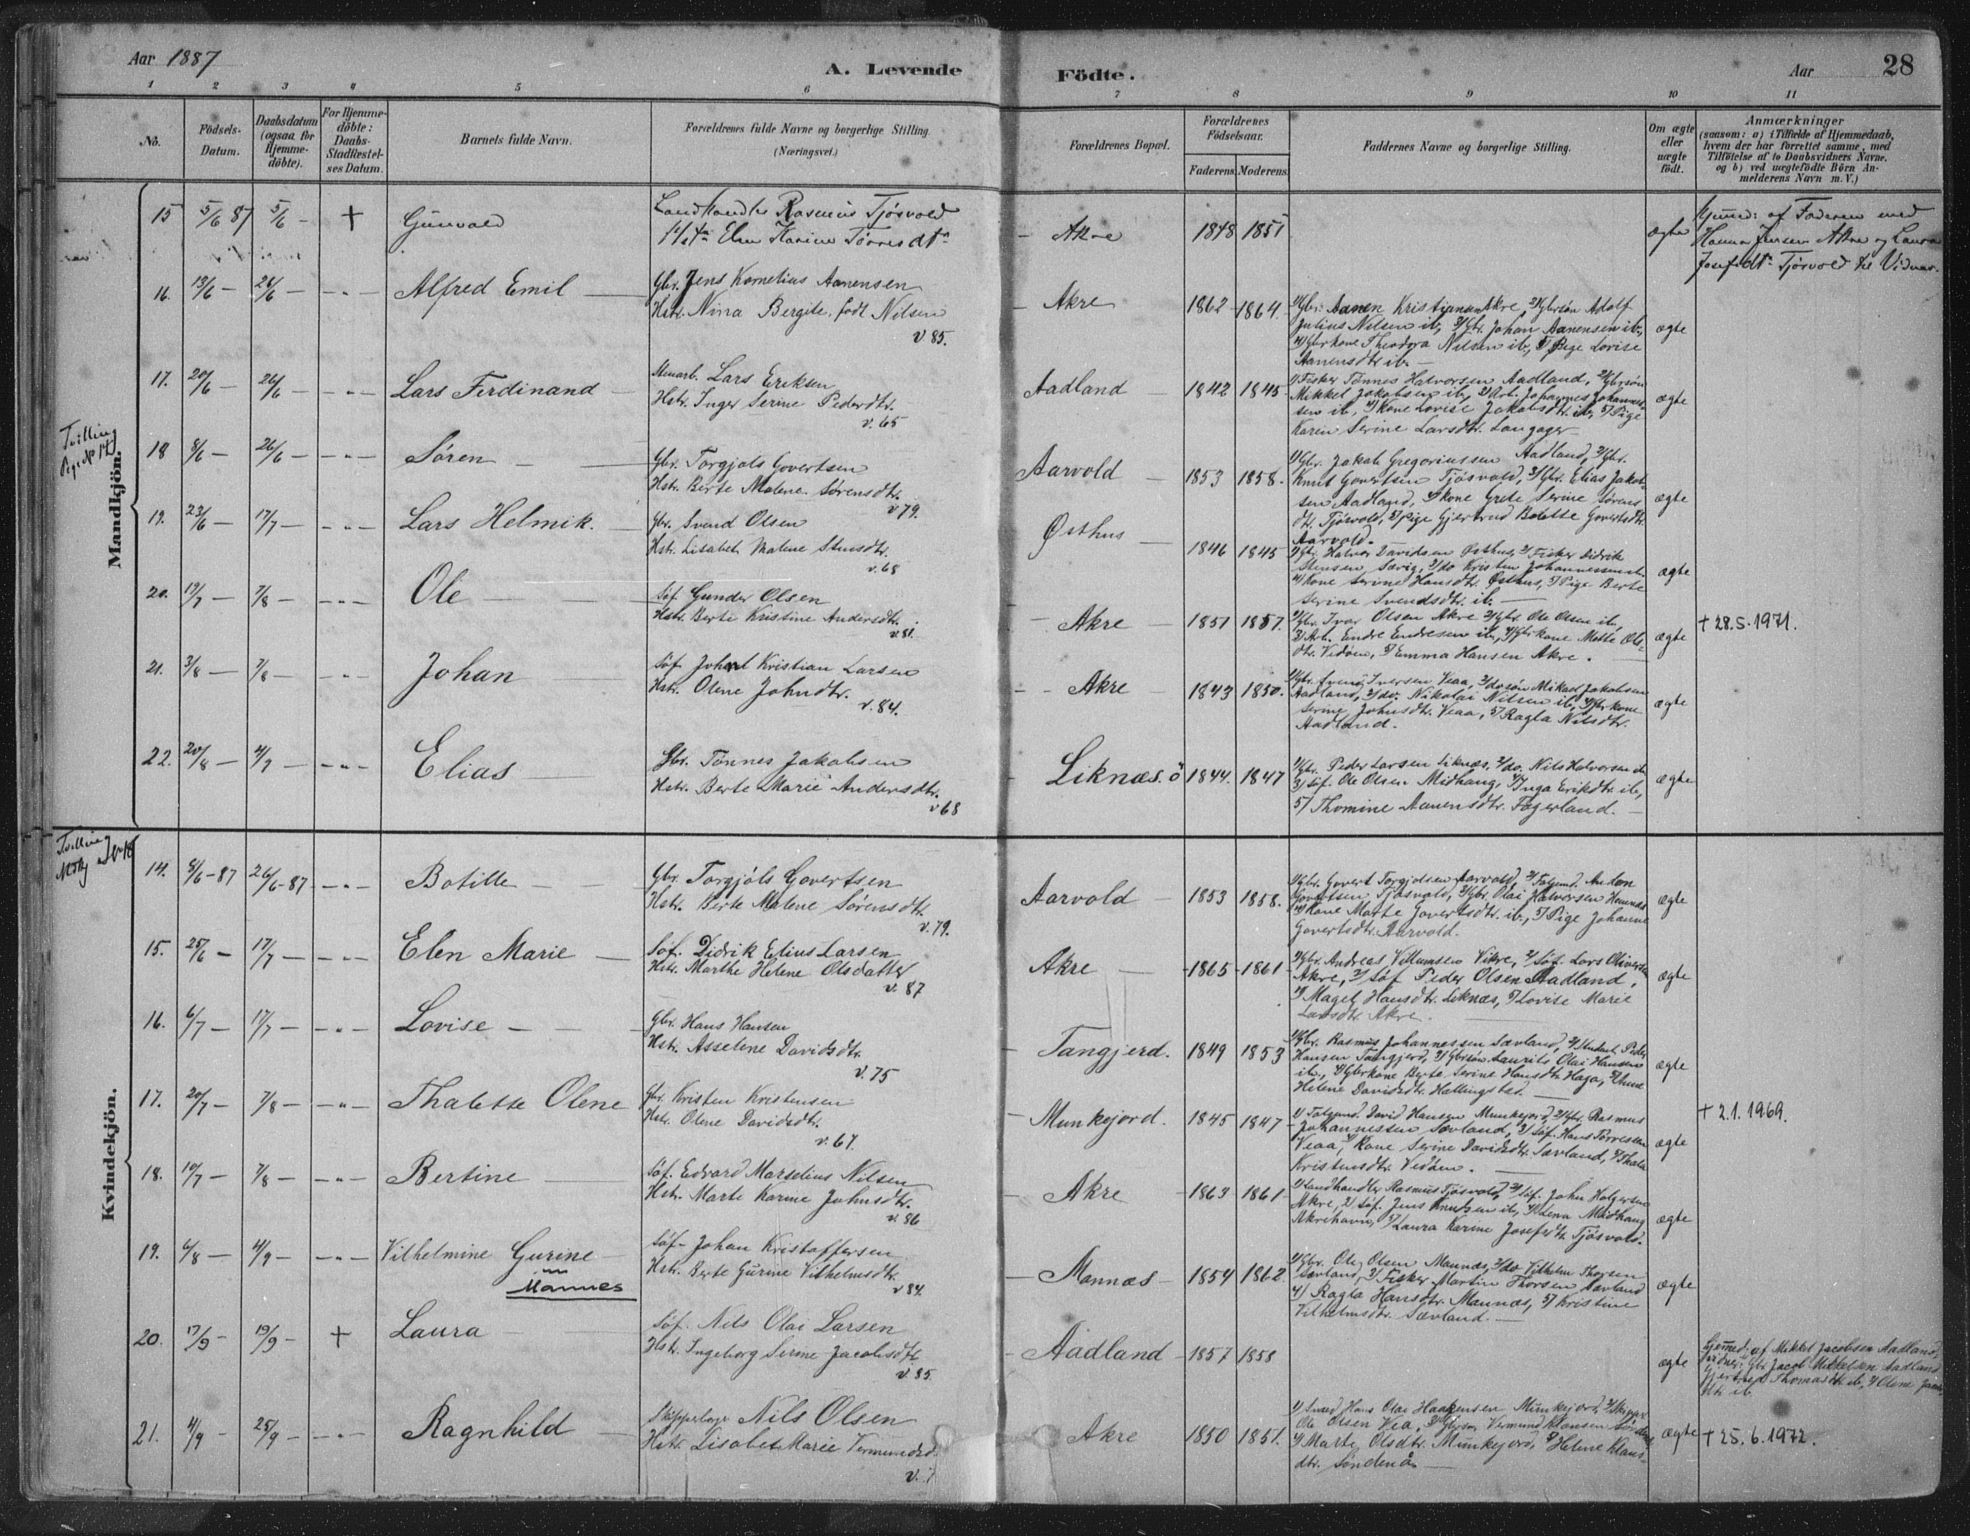 Aar 1887
A. Levende Födte.
Aar 28
1 2 3 4 5 6 7 8 9 10 11
No.
Födsels-Datum.
Daabsdatum (ogsaa for Hjemme-döbte).
For Hjemme-döbte: Daabs-Stadfestel-ses Datum.
Barnets fulde Navn.
Forældrenes fulde Navne og borgerlige Stilling. (Næringsvei.)
Forældrenes Bopæl.
Forældrenes Födselsaar.
Faderens. Moderens.
Faddernes Navne og borgerlige Stilling.
Om ægte eller uægte födt.
Anmærkninger
(saasom: a) i Tilfælde af Hjemmedaab, hvem der har forrettet samme, med Tilföielse af to Daabsvidners Navne, og b) ved uægtefödte Börn An-melderens Navn m. V.)
Mandkjön.
15 5/6 87 5/6 — + Gunvald
Landhandler Rasmus Tjösvold
Elen Karine Torresdtr
— Akre 1848 1851 ægte
Hjemd: af Faderen med
Hanna Jensen Akre og Laura
Josefsdtr Tjösvold til Vidner.
16. 13/6 — 26/6 — — " — Alfred Emil
Gbr. Jens Kornelius Aanensen
Hstr. Nina Bergite, født Nilsen
v 85.
— Akre 1862 1864.
1/ Gbr. Aanen Kristiansen Akre, 2/ Gbrsøn Adolf
Julius Nilsen ib, 3/ Gbr. Johan Aanensen ib,
4/ Gbrkone Theodora Nilsen ib, 5/ Pige Lovise
Aanensdtr ib. —
ægte
17. 20/6 — 26/6 — — " — Lars Ferdinand —
Lars Eriksen
Hstr. Inger Serine Pedersdtr.
v. 65
Aadland — 1842 1845
1/ Fisker Tönnes Halvorsen Aadland, 2/ Gbrsøn
Mikkel Jakobsen ib, 3/ Arb. Johannes Johannes-
sen ib, 4/ Kone Lovise Jakobsdtr ib, 5/ Pige
Karen Serine Larsdtr. Langager —
ægte
Tvilling
Pige No 14
18 8/6 — 26/6 — — " — Søren —
Gbr. Torgjols Govertsen
Hstr. Berte Malene Sørensdtr.
v 79.
Aarvold — 1853 1858.
1/ Gbr. Jakob Gregoriussen Aadland, 2/ Gbr.
Knut Govertsen Tjösvold, 3/ Gbr. Elias Jakob-
sen Aadland, 4/ Kone Grete Serine Sørens
dtr. Tjösvold, 5/ Pige Gjertrud Bolette Govertsdtr
Aarvold.
ægte
19. 23/6 — 17/7 — — " — Lars Helmik. —
Gbr. Svend Olsen
Hstr. Lisabet Malene Stensdtr.
v. 68
Østhus — 1846 1845
1/ Gbr. Halvor Davidsen Østhus, 2/ Fisker Didrik
Stensen Sævig, 3/ do Kristen Johannessen ib.
4/ Kone Serine Hansdtr. Østhus, 5/ Pige Berte
Serine Svendsdtr. ib. —
ægte
20. 7/8 — — " — Ole —
Søf. Gunder Olsen
Hstr. Berte Kristine Andersdtr.
v. 81.
— Akre — 1851 1857.
1/ Gbr. Ivar Olsen Akre 2/ Gbr. Ole Olsen ib,
3/ Arb. Endre Endresen ib, 4/ Gbrkone Mette Ols-
dtr. Vedøen, 5/ Emma Hansen Akre. —
ægte
+ 28.5.1971.
21. 3/8 — 7/8 — — " — Johan
Søf. Johan Kristian Larsen
Hstr. Olene Johnsdtr.
v. 84.
— Akre — 1843 1850.
1/ Gbr. Iversen Veaa, 2/ do søn Mikal Jakobsen
Aadland, 3/ do. Nikolai Nilsen ib, 4/ Gbrkone
Serine Johnsdtr. Veaa, 5/ Ragla Nilsdtr.
Aadland.
ægte
22. 20/8 — 4/9 — — " — Elias —
Gbr. Tönnes Jakobsen
Hstr. Berte Marie Andersdtr.
v 68
— Liknæs. ö 1844. 1847
1/ Gbr. Peder Larsen Liknæs, 2/ do. Nils Halvorsen do
3/ Søf. Ole Olsen Midhaug, 4/ Inga Eriksdtr ib,
5/ Thomine Aanensdtr. Fagerland. —
ægte
Kvindekjön.
Tvilling
14. 8/6 — 87 26/6 — 87 — " — Botille —
Gbr. Torgjols Govertsen
Hstr. Berte Malene Sørensdtr.
v. 79.
Aarvold — 1853 1858.
1/ Gbr. Govert Torgjolsen Aarvold, 2/ Anden
Govertsen Tjösvold, 3/ Gbr. Olai Halvorsen Hemnæs
4/ Kone Marte Govertsdtr. ib, 5/ Pige Johanne
Govertsdtr. Aarvold.
ægte
15. 25/6 — 17/7 — — " — Elen Marie —
Søf. Didrik Elius Larsen
Hstr. Marthe Helene Olsdatter
v. 87
Akre — 1865 1861
1/ Gbr. Andreas Villumsen Vikre, 2/ Søf. Lars Olivers
Akre, 3/ Søf Peder Olsen Aadland,
4/ Magel Hansdtr. Liknæs, 5/ Lovise Marie
Larsdtr. Akre. —
ægte
16. 6/7 — 17/7 — — " — Lovise —
Gbr. Hans Hansen
Hstr. Asselene Davidsdtr.
v. 75
— Tangjerd. 1849 1853
1/ Gbr. Rasmus Johannessen Sævland, 2/ Student Peder
Hansen Tangjerd, 3/ Gbrsøn Laurits Olai Hansen
ib., 4/ Gbrkone Berte Serine Hansdtr Haga,
Helene Davidsdtr. Hallingstad. —
ægte
17. 20/7 — 7/8 — — " — Thalette Olene
Gbr. Kristen Kristensen
Hstr. Olene Davidsdtr.
v. 67.
— Munkejord. 1845 1847
1/ David Hansen Munkejord, 2/ Gbr. Rasmus
Johannessen Sævland, 3/ Søf. Hans Torressen
Veaa, 4/ Kone Serine Davidsdtr. Sævland, 5/ Thala
Kristensdtr. Vedøen. —
ægte
+ 2.1.1969.
18. 10/7 — 7/8 — — " — Bertine —
Søf. Edvard Marselius Nilsen
Hstr. Marte Karine Johnsdtr.
v. 86
— Akre — 1863 1861
1/ Landhandler Rasmus Tjösvold, 2/ Søf. John Holgersen
Akre, 3/ Søf. Jens Knutsen ib, 4/ Lena Midhaug
Akrehavn, 5/ Laura Karine Josefsdtr Tjösvold.
ægte
19. 6/8 — 4/9 — — " — Vilhelmine Gurine —
Mannes
Søf. Johan Kristoffersen
Hstr. Berte Gurine Vilhelmsdtr.
v 84.
— Mannæs — 1854 1862
1/ Gbr. Ole Olsen Mannæs, 2/ do Vilhelm Thorsen
Sævland, 3/ Fisker Martin Thorsen Sævland
4/ Ragla Hansdtr. Mannæs, 5/ Kristine
Vilhelmsdtr. Sævland. —
ægte
20. 17/9 — 19/9 — + Laura —
Søf. Nils Olai Larsen
Hstr. Ingeborg Serine Jacobsdtr
v. 85
— Aadland — 1857 1858 ægte
Hjemd: af Mikkel Jacobsen Aadland,
Vidner: Gbr. Jacob Mikkelsen Aadland
Gjertrud Thomasdtr ib, Olene
dtr ib.
21. 4/9 — 25/9 — — " — Ragnhild —
Nils Olsen
Hstr. Lisabet Marie Vermundsd.
— Akre 1850 1851.
1/ Smed Hans Olai Haakensen Munkejord, 2/
Ole Olsen Vea, 3/ Gbrsøn Vermund Klausen
4/ Marte Olsdtr. Munkejord, 5/ Helene Klaus-
dtr. Søndenå —
ægte
+ 25.6.1972.